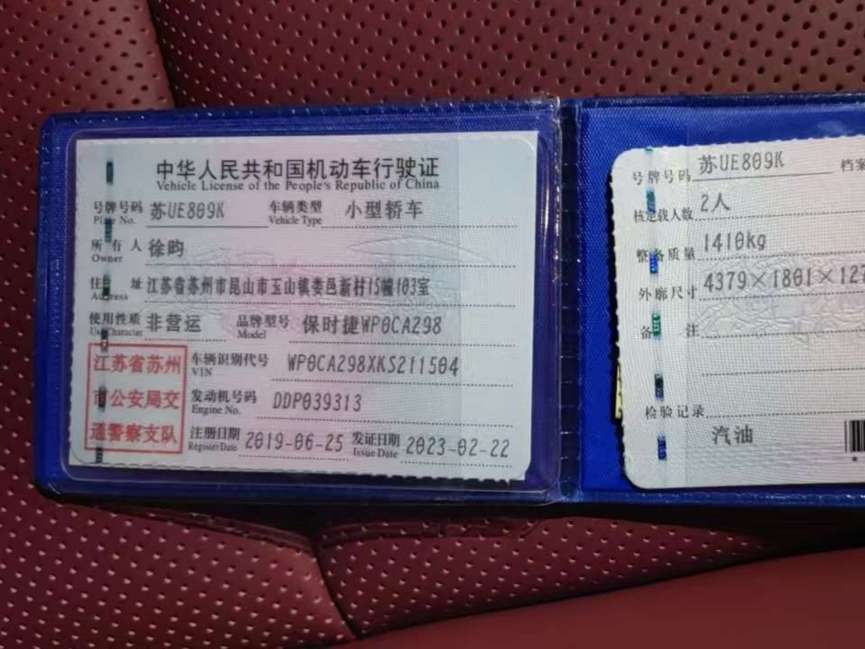 中华人民共和国机动车行驶证
Vehicle License of the People's Republic of China
号牌号码 苏UE809K 车辆类型 小型轿车
Plate No. Vehicle Type
所有人 徐昀
Owner
住址 江苏省苏州市昆山市玉山镇娄邑新村15幢103室
Address
使用性质 非营运 品牌型号 保时捷WP0CA298
Use Character Model
江苏省苏州
市公安局交
通警察支队
车辆识别代号 WP0CA298XKS211504
VIN
发动机号码 DDP039313
Engine No.
注册日期 2019-06-25 发证日期 2023-02-22
Register Date Issue Date
号牌号码 苏UE809K 档案
核定载人数 2人
整备质量 1410kg
外廓尺寸 4379×1801×127
备注
检验记录
汽油